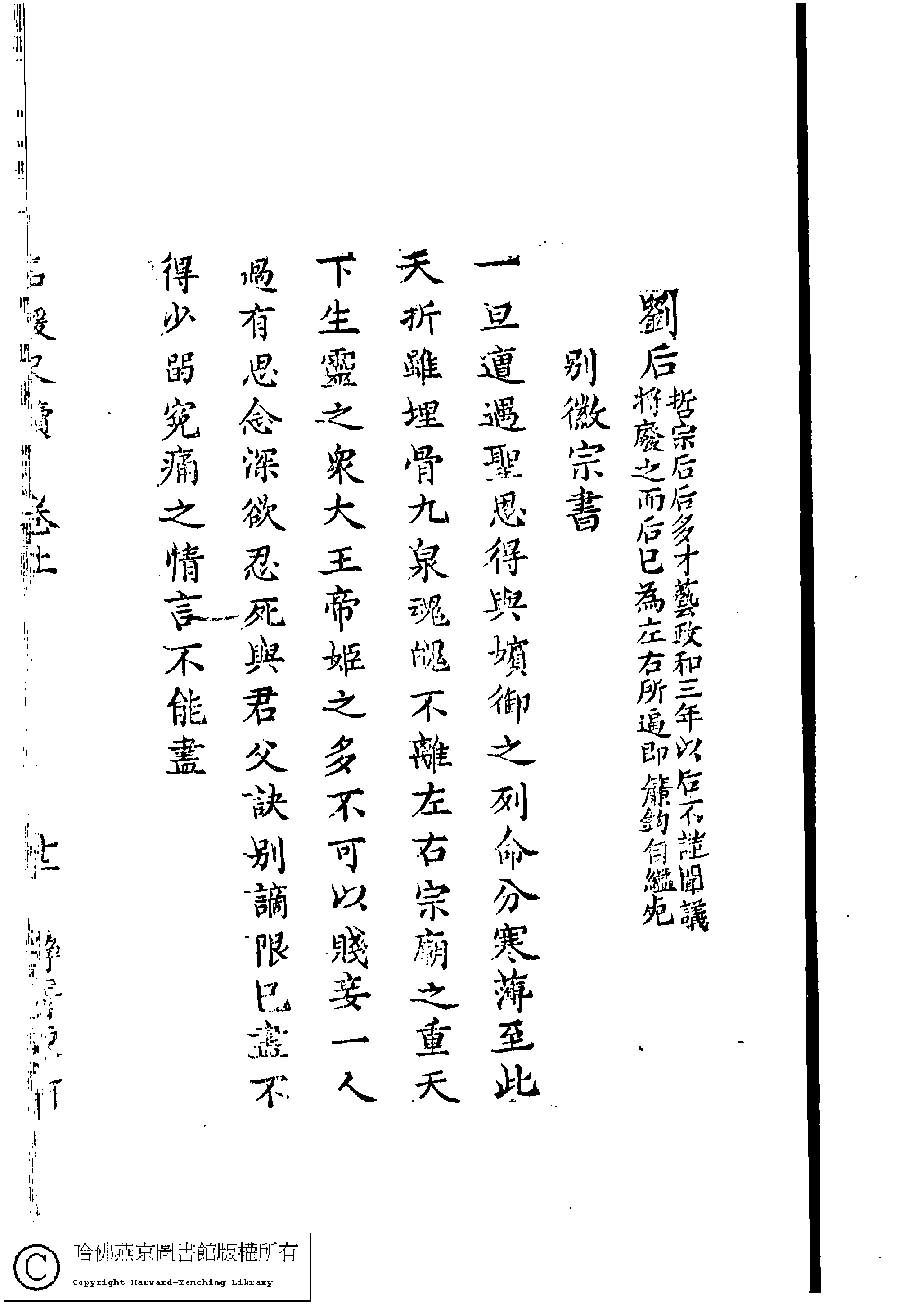 劉后
哲宗后后多才藝政和三年以后不謹聞議
將廢之而后已為左右所逼即簾鉤自縊死
別徽宗書
一旦遭遇聖恩得與嬪御之列命分寒薄至此
夭折雖埋骨九泉魂魄不離左右宗廟之重天
下生靈之衆大王帝姬之多不可以賤妾一人
過有思念深欲忍死與君父訣別謫限已盡不
得少留冤痛之情言不能盡
卷上
哈佛燕京圖書館版權所有
Copyright Harvard-Yenching Library